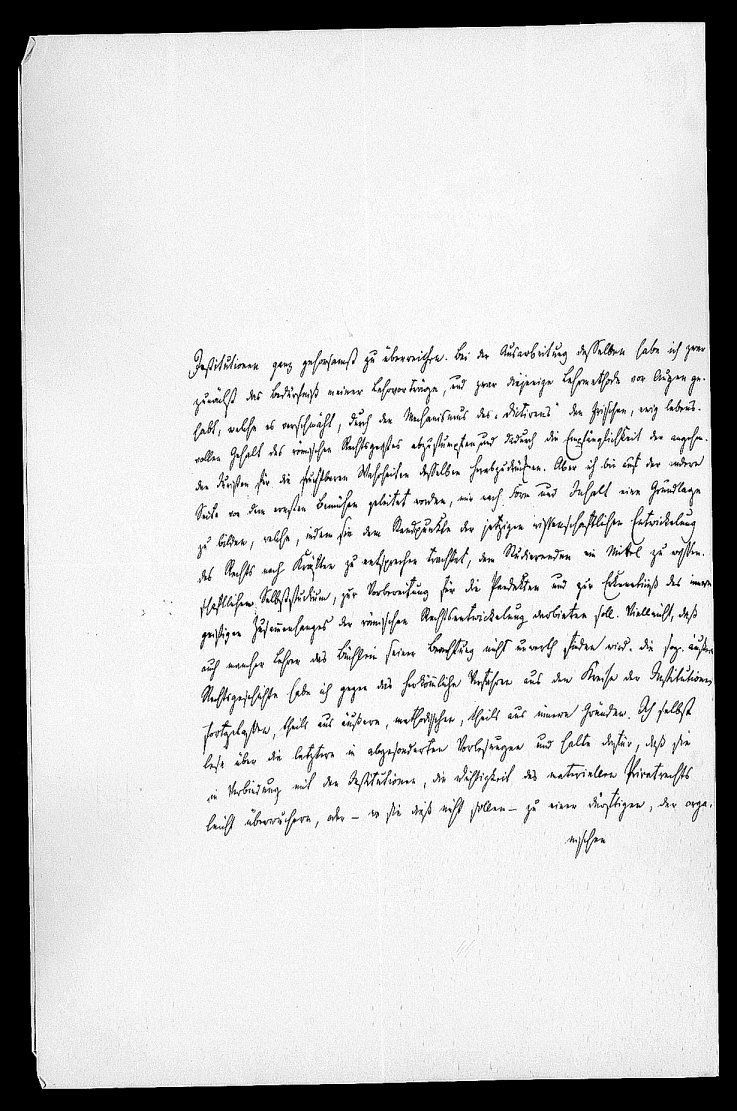 Institutionen ganz gehorsamst zu überreichen. Bei der Ausarbeitung desselben habe ich zwar
zunächst das Bedürfniß meiner Lehrvorträge, und zwar diejenige Lehrmethode vor Augen ge-
habt, welche es verschmäht, durch den Mechanismus des „Dictirens" den frischen, ewig lebens-
vollen Gehalt des römischen Rechtsgeistes abzustumpfen und dadurch die Empfänglichkeit der angehen-
den Juristen für die fruchtbaren Wahrheiten desselben herabzudrücken. Aber ich bin auf der andern
Seite von dem ernsten Bemühen geleitet worden, nur nach Form und Inhalt eine Grundlage
zu bilden, welche, indem sie dem Standpunkte der jetzigen wissenschaftlichen Entwickelung
des Rechts nach Kräften zu entsprechen trachtet, dem Studierenden ein Mittel zu wissen-
schaftlichem Selbststudium, zur Vorbereitung für die Pandekten und zur Erkenntniß des innern
geistigen Zusammenhanges der römischen Rechtsentwickelung darbieten soll. Vielleicht, daß
auch mancher Lehrer das Büchlein seiner Beachtung nicht unwerth finden wird. Die sog. äußere
Rechtsgeschichte habe ich gegen das herkömliche Verfahren aus dem Kreise der Institutionen
fortgelassen, theils aus äußern, methodischen, theils aus innern Gründen. Ich selbst
lese über die letztere in abgesonderten Vorlesungen und halte dafür, daß sie
in Verbindung mit den Institutionen, die Wichtigkeit des materiellen Privatrechts
leicht überwuchern, oder – wo sie dieß nicht sollen – zu einer dürftigen, der orga-
nischen